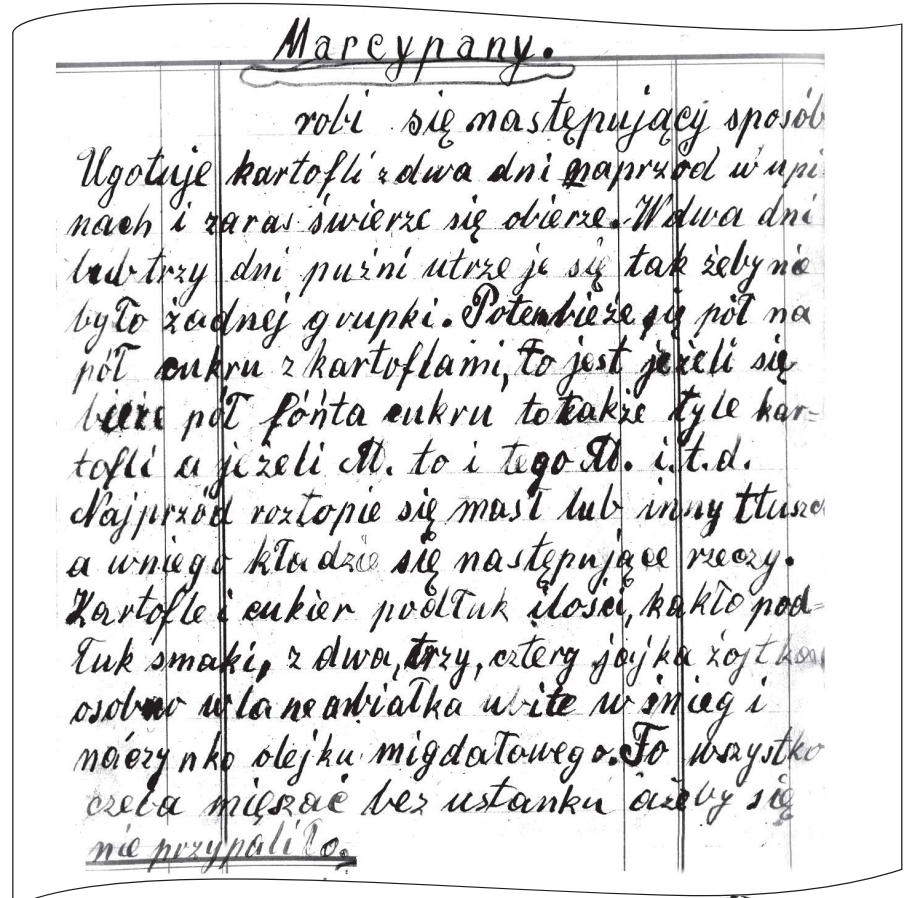 Marcypany.
robi się następujący sposób
Ugotuje kartofli z dwa dni naprzod w upi
nach i zaras świerze się obierze. W dwa dni
lub trzy dni puźni utrze je się tak żeby nie
było żadnej grupki. Potem bieże się pół na
pół cukru z kartoflami, to jest jeżeli się
bieże pół fónta cukru to także tyle kar=
tofli a jeżeli M. to i tego M. i.t.d.
Najprzód roztopie się masł lub inny tłuszc
a wniego kładzie się następujące rzeczy.
Kartofle i cukier podłuk ilosci, kakło pod=
łuk smaki, z dwa, trzy, czterg jajka żojtkow
osobno wlane a białka ubite w śnieg i
náczynko olejku migdałowego. To wszystko
czeba mięszać bez ustanku ażeby się
nie przypaliło.